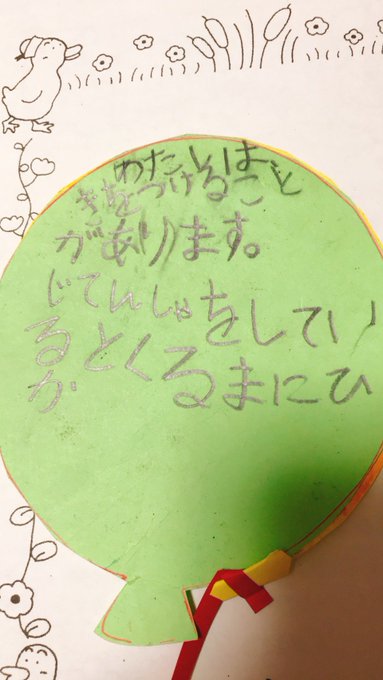 わたしは
きをつけること
があります。
じてんしゃをしてい
るとくるまにひ
か